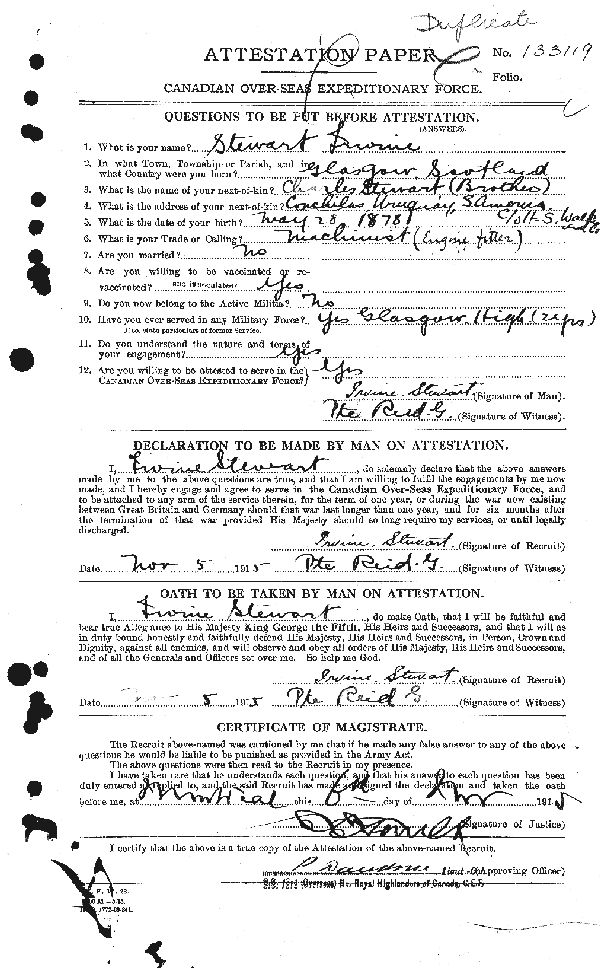 Duplicate
ATTESTATION PAPER
No. 133119
Folio.
CANADIAN OVER-SEAS EXPEDITIONARY FORCE.
QUESTIONS TO BE PUT BEFORE ATTESTATION.
(ANSWERS).
1. What is your name? Stewart Irvine
2. In what Town, Township or Parish, and in
what Country were you born? Glasgow Scotland
3. What is the name of your next-of-kin? Charles Stewart (Brother)
4. What is the address of your next-of-kin? Conchilas Uruguay, S. America
5. What is the date of your birth? May 28 1878 c/o H. S.
6. What is your Trade or Calling? Machinist (Engine fitter)
7. Are you married? No
8. Are you willing to be vaccinated or re-
vaccinated? and inoculated? Yes
9. Do you now belong to the Active Militia? No
10. Have you ever served in any Military Force? Yes Glasgow High
If so, state particulars of former Service.
11. Do you understand the nature and terms of
your engagement? Yes
12. Are you willing to be attested to serve in the
CANADIAN OVER-SEAS EXPEDITIONARY FORCE? Yes
Irvine Stewart (Signature of Man).
Pte Reid G. (Signature of Witness).
DECLARATION TO BE MADE BY MAN ON ATTESTATION.
I, Irvine Stewart, do solemnly declare that the above answers
made by me to the above questions are true, and that I am willing to fulfil the engagements by me now
made, and I hereby engage and agree to serve in the Canadian Over-Seas Expeditionary Force, and
to be attached to any arm of the service therein, for the term of one year, or during the war now existing
between Great Britain and Germany should that war last longer than one year, and for six months after
the termination of that war provided His Majesty should so long require my services, or until legally
discharged.
Irvine Stewart (Signature of Recruit)
Date Nov 5 1915 Pte Reid. G (Signature of Witness)
OATH TO BE TAKEN BY MAN ON ATTESTATION.
I, Irvine Stewart, do make Oath, that I will be faithful and
bear true Allegiance to His Majesty King George the Fifth, His Heirs and Successors, and that I will as
in duty bound honestly and faithfully defend His Majesty, His Heirs and Successors, in Person, Crown and
Dignity, against all enemies, and will observe and obey all orders of His Majesty, His Heirs and Successors,
and of all the Generals and Officers set over me. So help me God.
Irvine Stewart (Signature of Recruit)
Date 5 1915 Pte Reid G (Signature of Witness)
CERTIFICATE OF MAGISTRATE.
The Recruit above-named was cautioned by me that if he made any false answer to any of the above
questions he would be liable to be punished as provided in the Army Act.
The above questions were then read to the Recruit in my presence.
I have taken care that he understands each question, and that his answer to each question has been
duly entered as replied to, and the said Recruit has made and signed the declaration and taken the oath
before me, at Montreal this 5th day of Nov 1915
(Signature of Justice)
I certify that the above is a true copy of the Attestation of the above-named Recruit.
(Approving Officer)
Royal Highlanders of Canada, C.E.F.